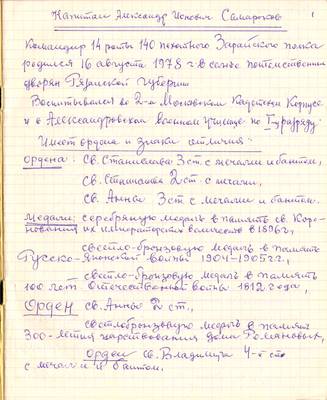 1
Капитан Александр Исаевич Самароков
Командир 14 роты 140 пехотного Зарайского полка
родился 16 августа 1978 г в семье потомственных
дворян Рязанской Губернии
Воспитывался во 2-м Московском Кадетском Корпусе
и в Александровском военном училище по I разряду
Имеет ордена и знаки отличия:
Ордена: Св. Станислава 3 ст. с мечами и бантом,
Св. Станислава 2 ст. с мечами,
Св. Анны 3 ст. с мечами и бантом.
Медали: серебряную медаль в память св. Коро-
нования их императорских величеств в 1896 г,
светло-бронзовую медаль в память
Русско-Японской войны 1904-1905 гг,
светло-бронзовую медаль в память
100 лет Отечественной войны 1812 года,
Орден св. Анны 2 ст.,
светлобронзовую медаль в память
300-летия царствования дома Романовых,
орден св. Владимира 4-й ст
с мечами и бантом.